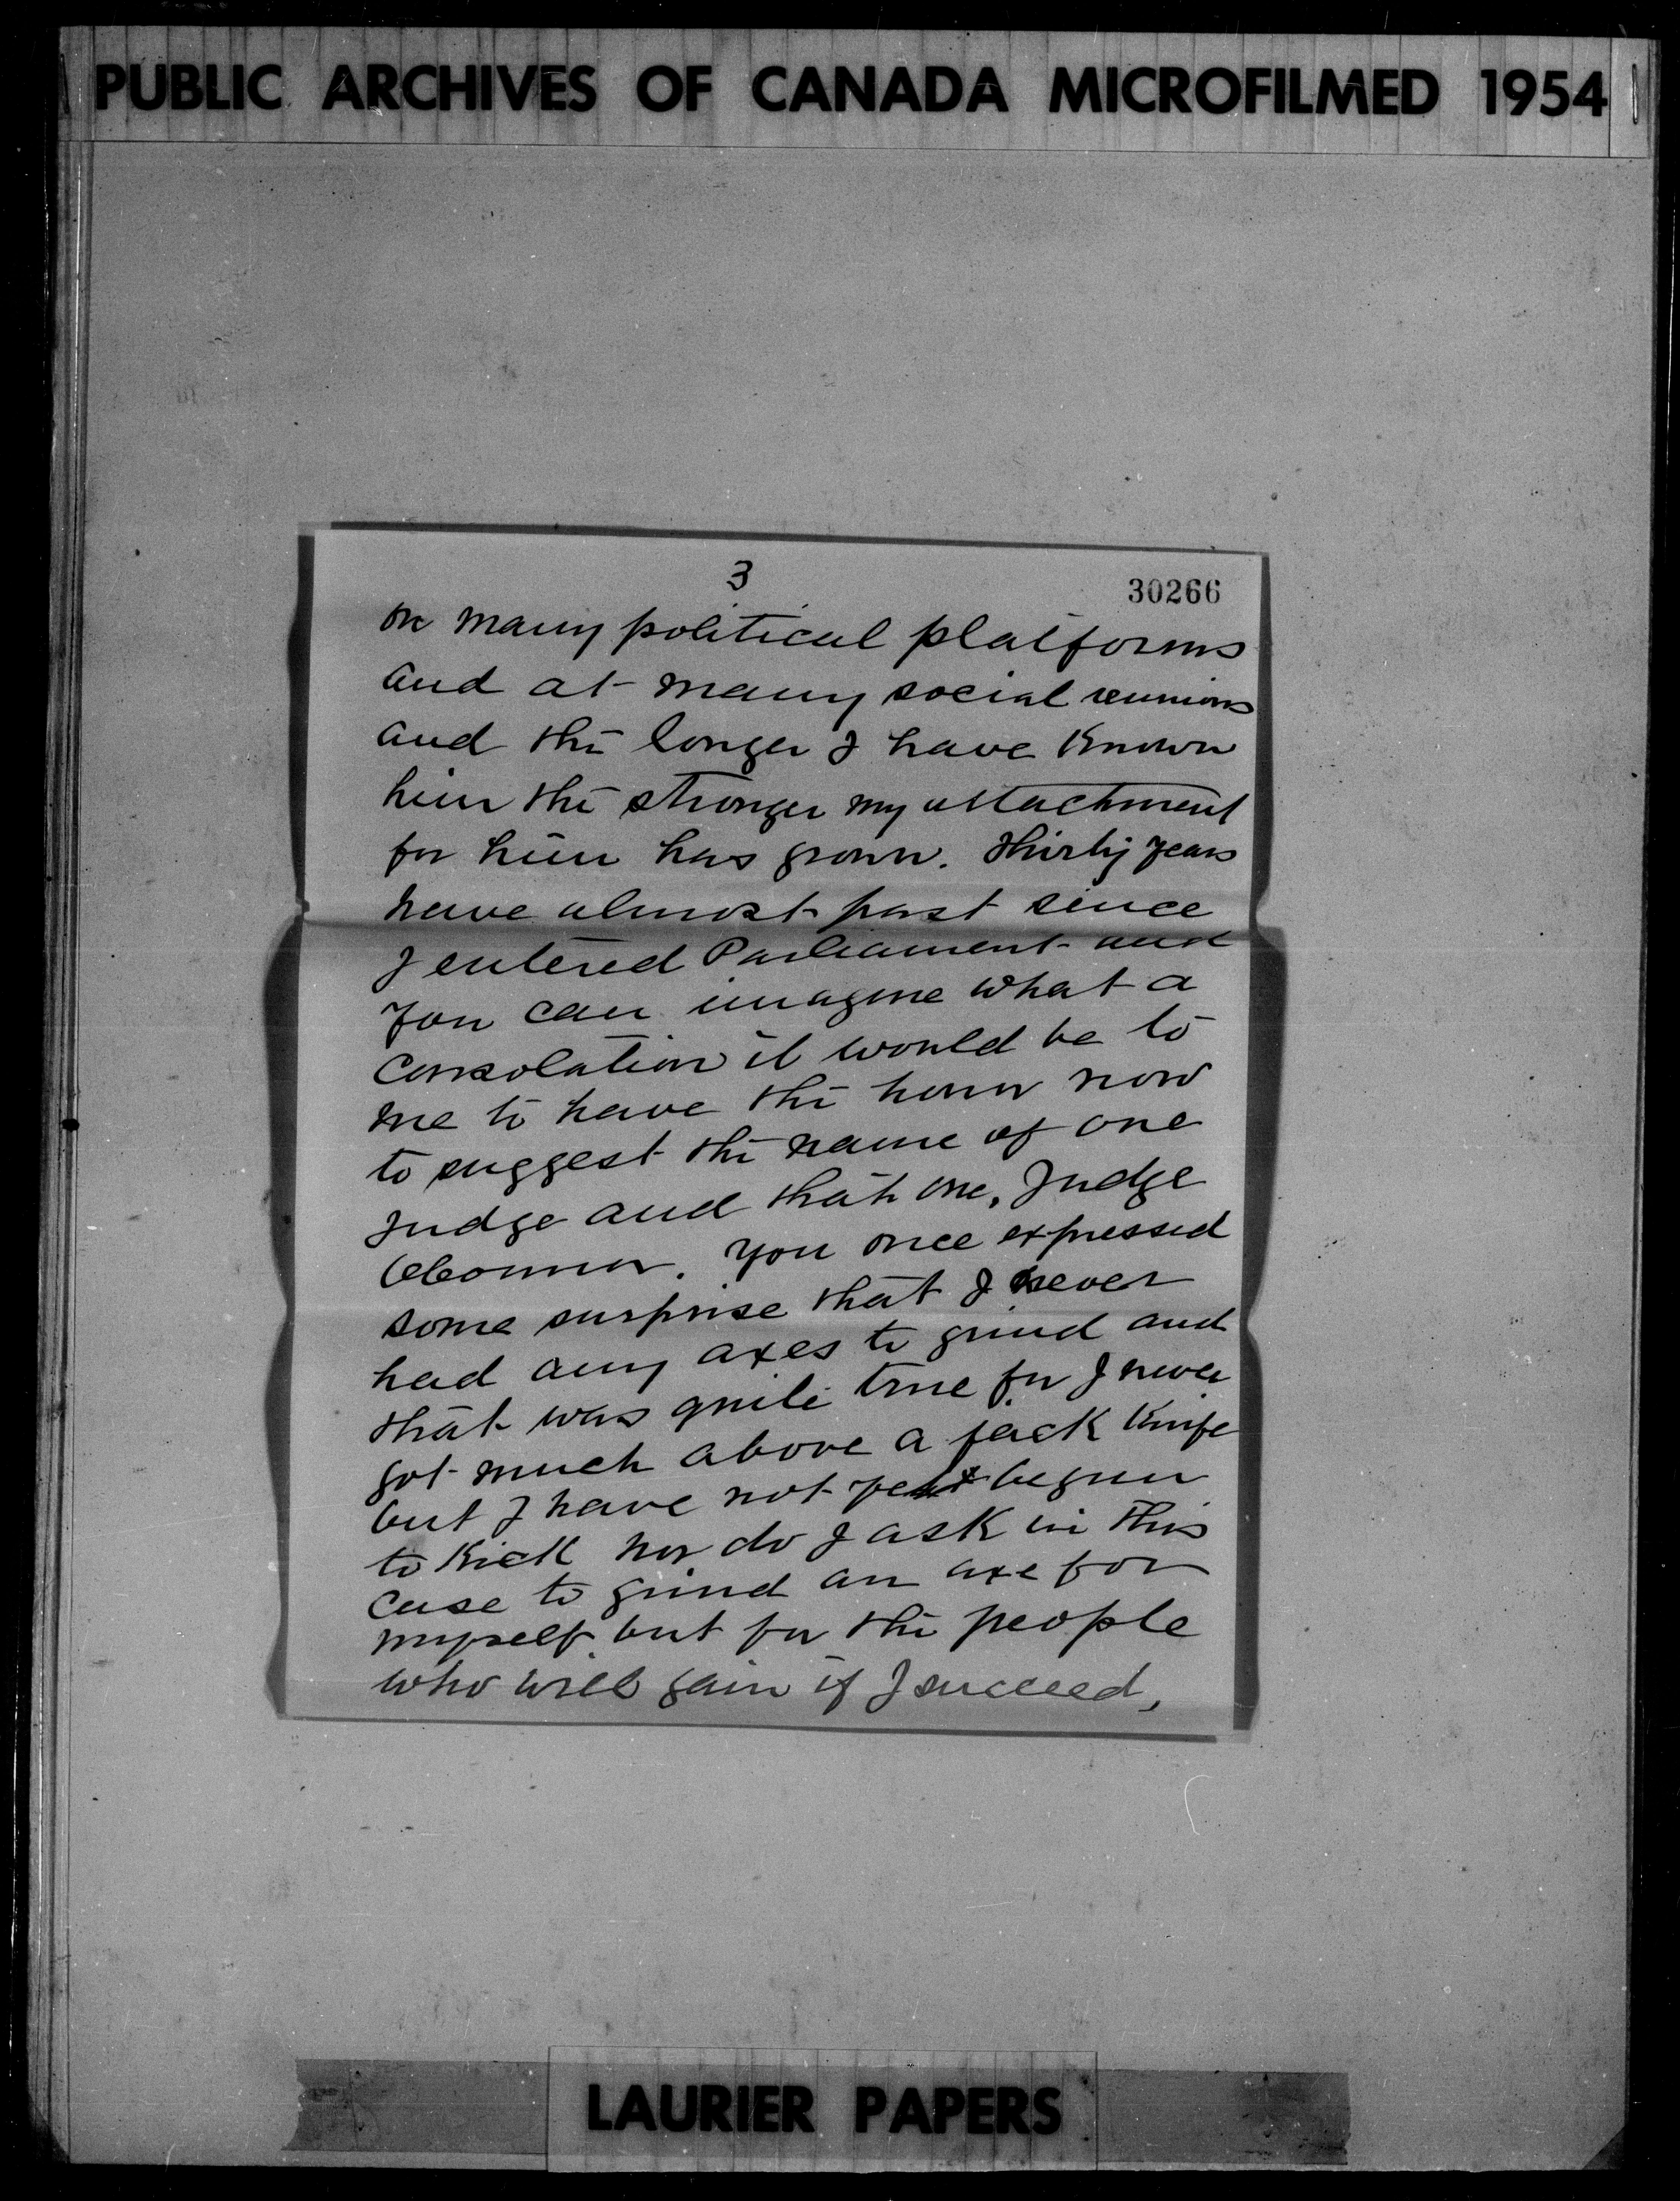 PUBLIC ARCHIVES OF CANADA MICROFILMED 1954
3
30266
on many political platforms
and at many social reunions
and the longer I have known
him the stronger my attachment
for him has grown. Thirty years
have almost past since
I entered Parliament and
you can imagine what a
consolation it would be to
me to have the honor now
to suggest the name of one
Judge and that one, Judge
OConnor. You once expressed
some surprise that I never
had any axes to grind and
that was quite true for I never
got much above a jack knife
but I have not yet begun
to kick nor do I ask in this
case to grind an axe for
myself but for the people
who will gain if I succeed,
LAURIER PAPERS